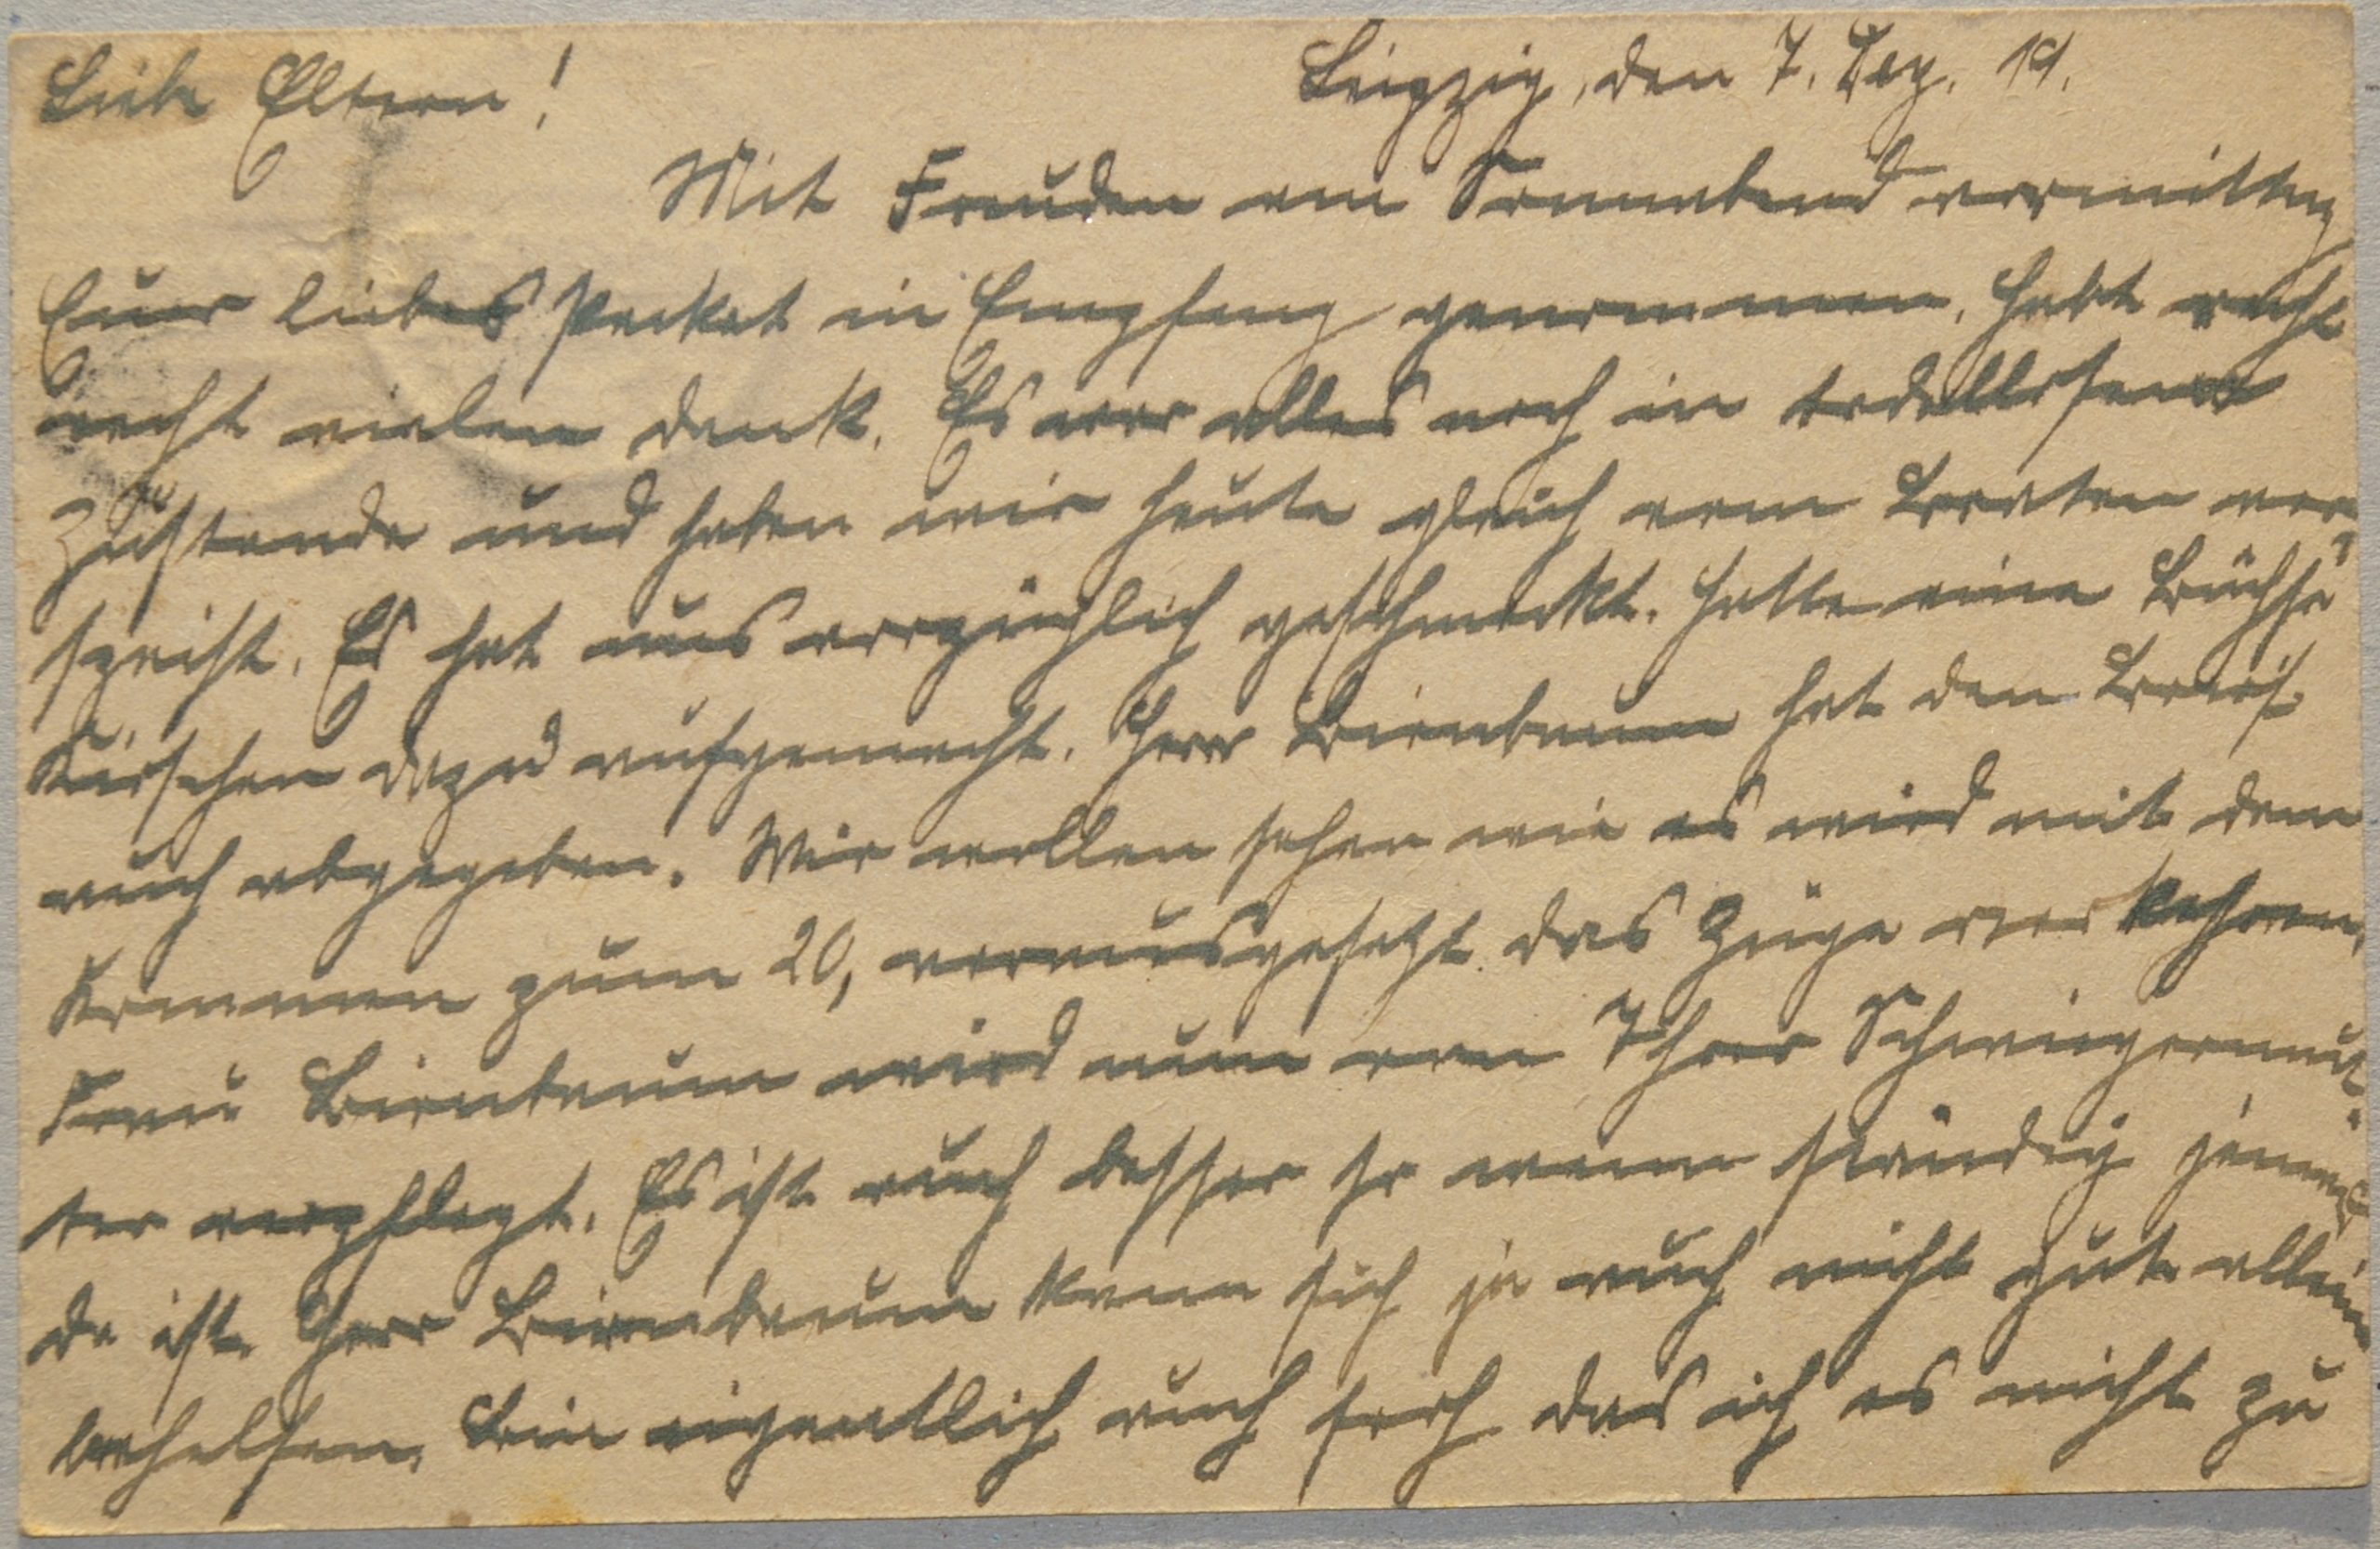 Liebe Eltern!
Leipzig, den 7. Dez. 19.
Mit Freuden am Sonnabend vormittag
Euer liebes Packet in Empfang genommen. Habt recht
recht vielen Dank. Es war alles noch in tadellosem
Zustande und haben wir heute gleich vom Braten ver-
speist. Es hat uns vorzüglich geschmeckt. Hatte eine Büchse
Kirschen dazu aufgemacht. Herr Birnbaum hat den Brief
auch abgegeben. Wir wollen sehen wie es wird mit dem
Kommen zum 20, vorausgesetzt das Züge verkehren.
Frau Birnbaum wird nun von Ihrer Schwiegermut-
ter verpflegt. Es ist auch besser so wenn ständig jemand
da ist. Herr Birnbaum kann sich ja auch nicht gut allein
behelfen. Bin eigentlich auch froh das ich es nicht zu